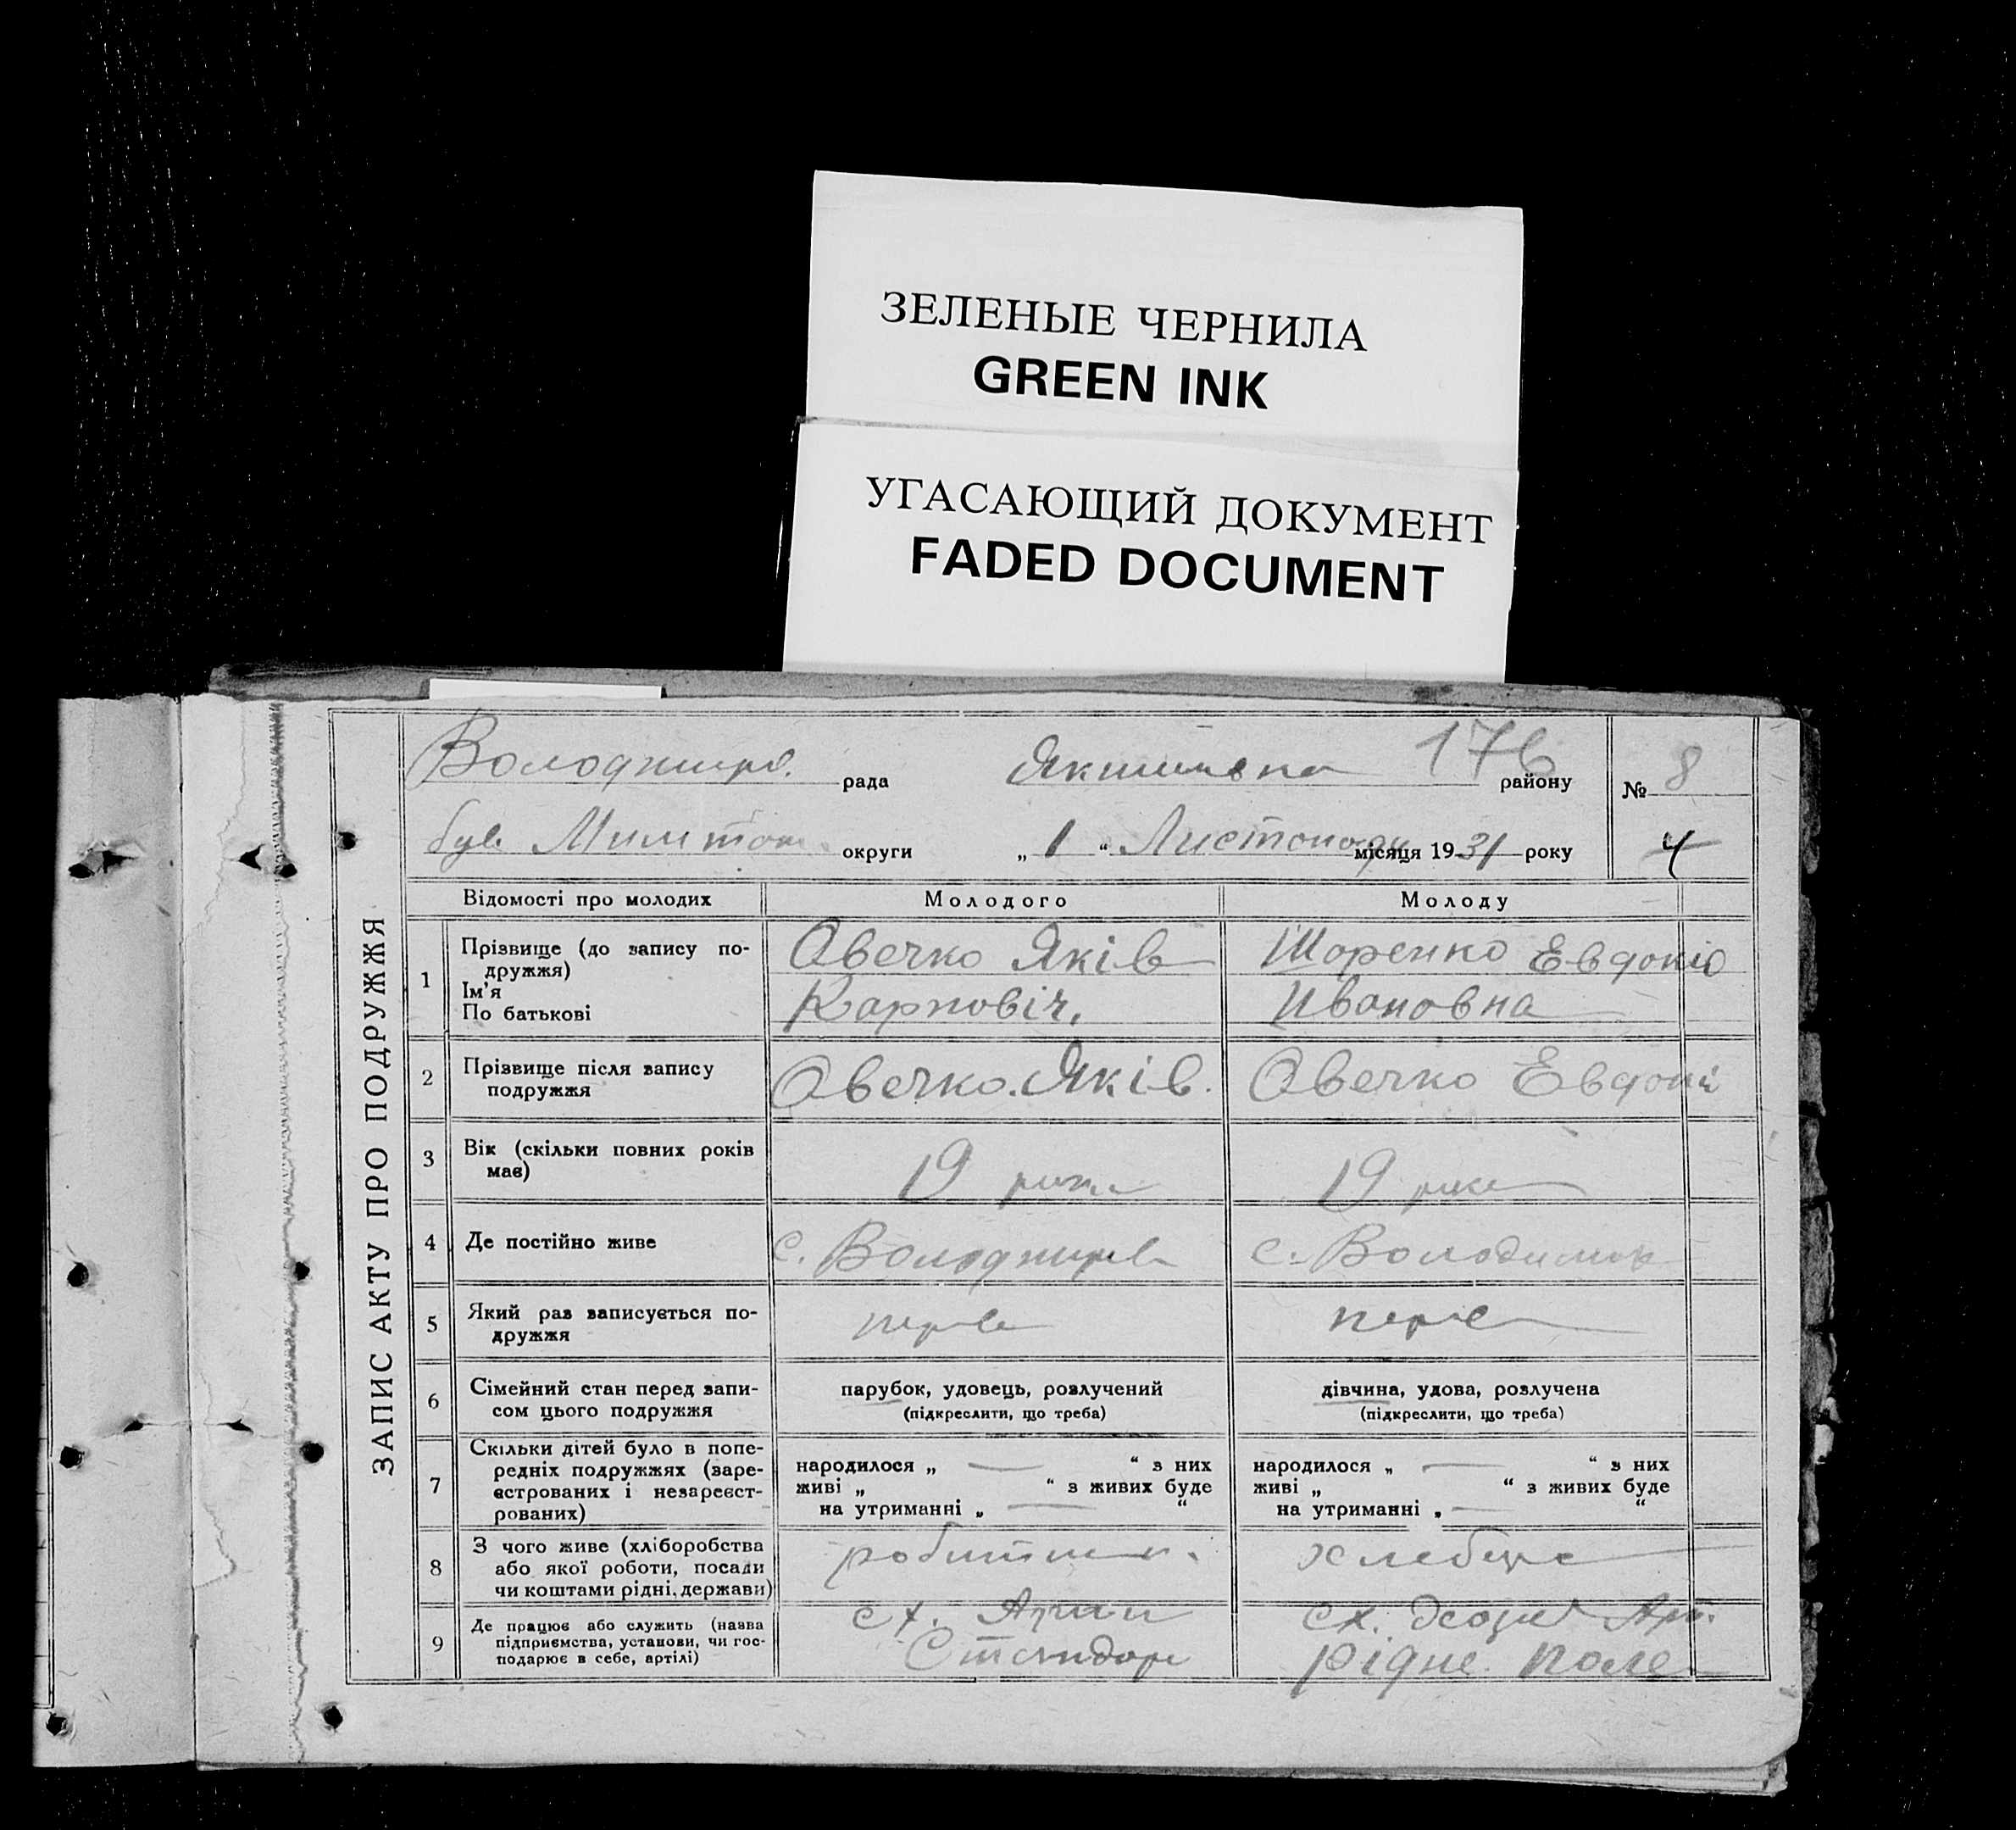 ЗЕЛЕНЫЕ ЧЕРНИЛА
GREEN INK
УГАСАЮЩИЙ ДОКУМЕНТ
FADED DOCUMENT
ЗАПИС АКТУ ПРО ПОДРУЖЖЯ
рада 176 району № 8
був. округи „ 1 “ Листопаду місяця 1931 року 4
Відомості про молодих Молодого Молоду
1 Прізвище (до запису по-
дружжя)
Ім'я
По батькові
Овечко Яків
Карповіч.
Шоренко Евдокіо
Ивановна
2 Прізвище після запису
подружжя
Овечко. Яків. Овечко
3 Вік (скільки повних років
має)
19 19
4 Де постійно живе
с. с.
5 Який раз записується по-
дружжя
6 Сімейний стан перед запи-
сом цього подружжя
парубок, удовець, розлучений
(підкреслити, що треба)
дівчина, удова, розлучена
(підкреслити, що треба)
7 Скільки дітей було в попе-
редніх подружжях (заре-
єстрованих і незареєст-
рованих)
народилося „ — “ з них
живі „ “ з живих буде
на утриманні „ — “
народилося „ — “ з них
живі „ “ з живих буде
на утриманні „ — “
8 З чого живе (хліборобства
або якої роботи, посади
чи коштами рідні, держави)
9 Де працює або служить (назва
підприємства, установи, чи гос-
подарює в себе, артілі)
Рідне Поле